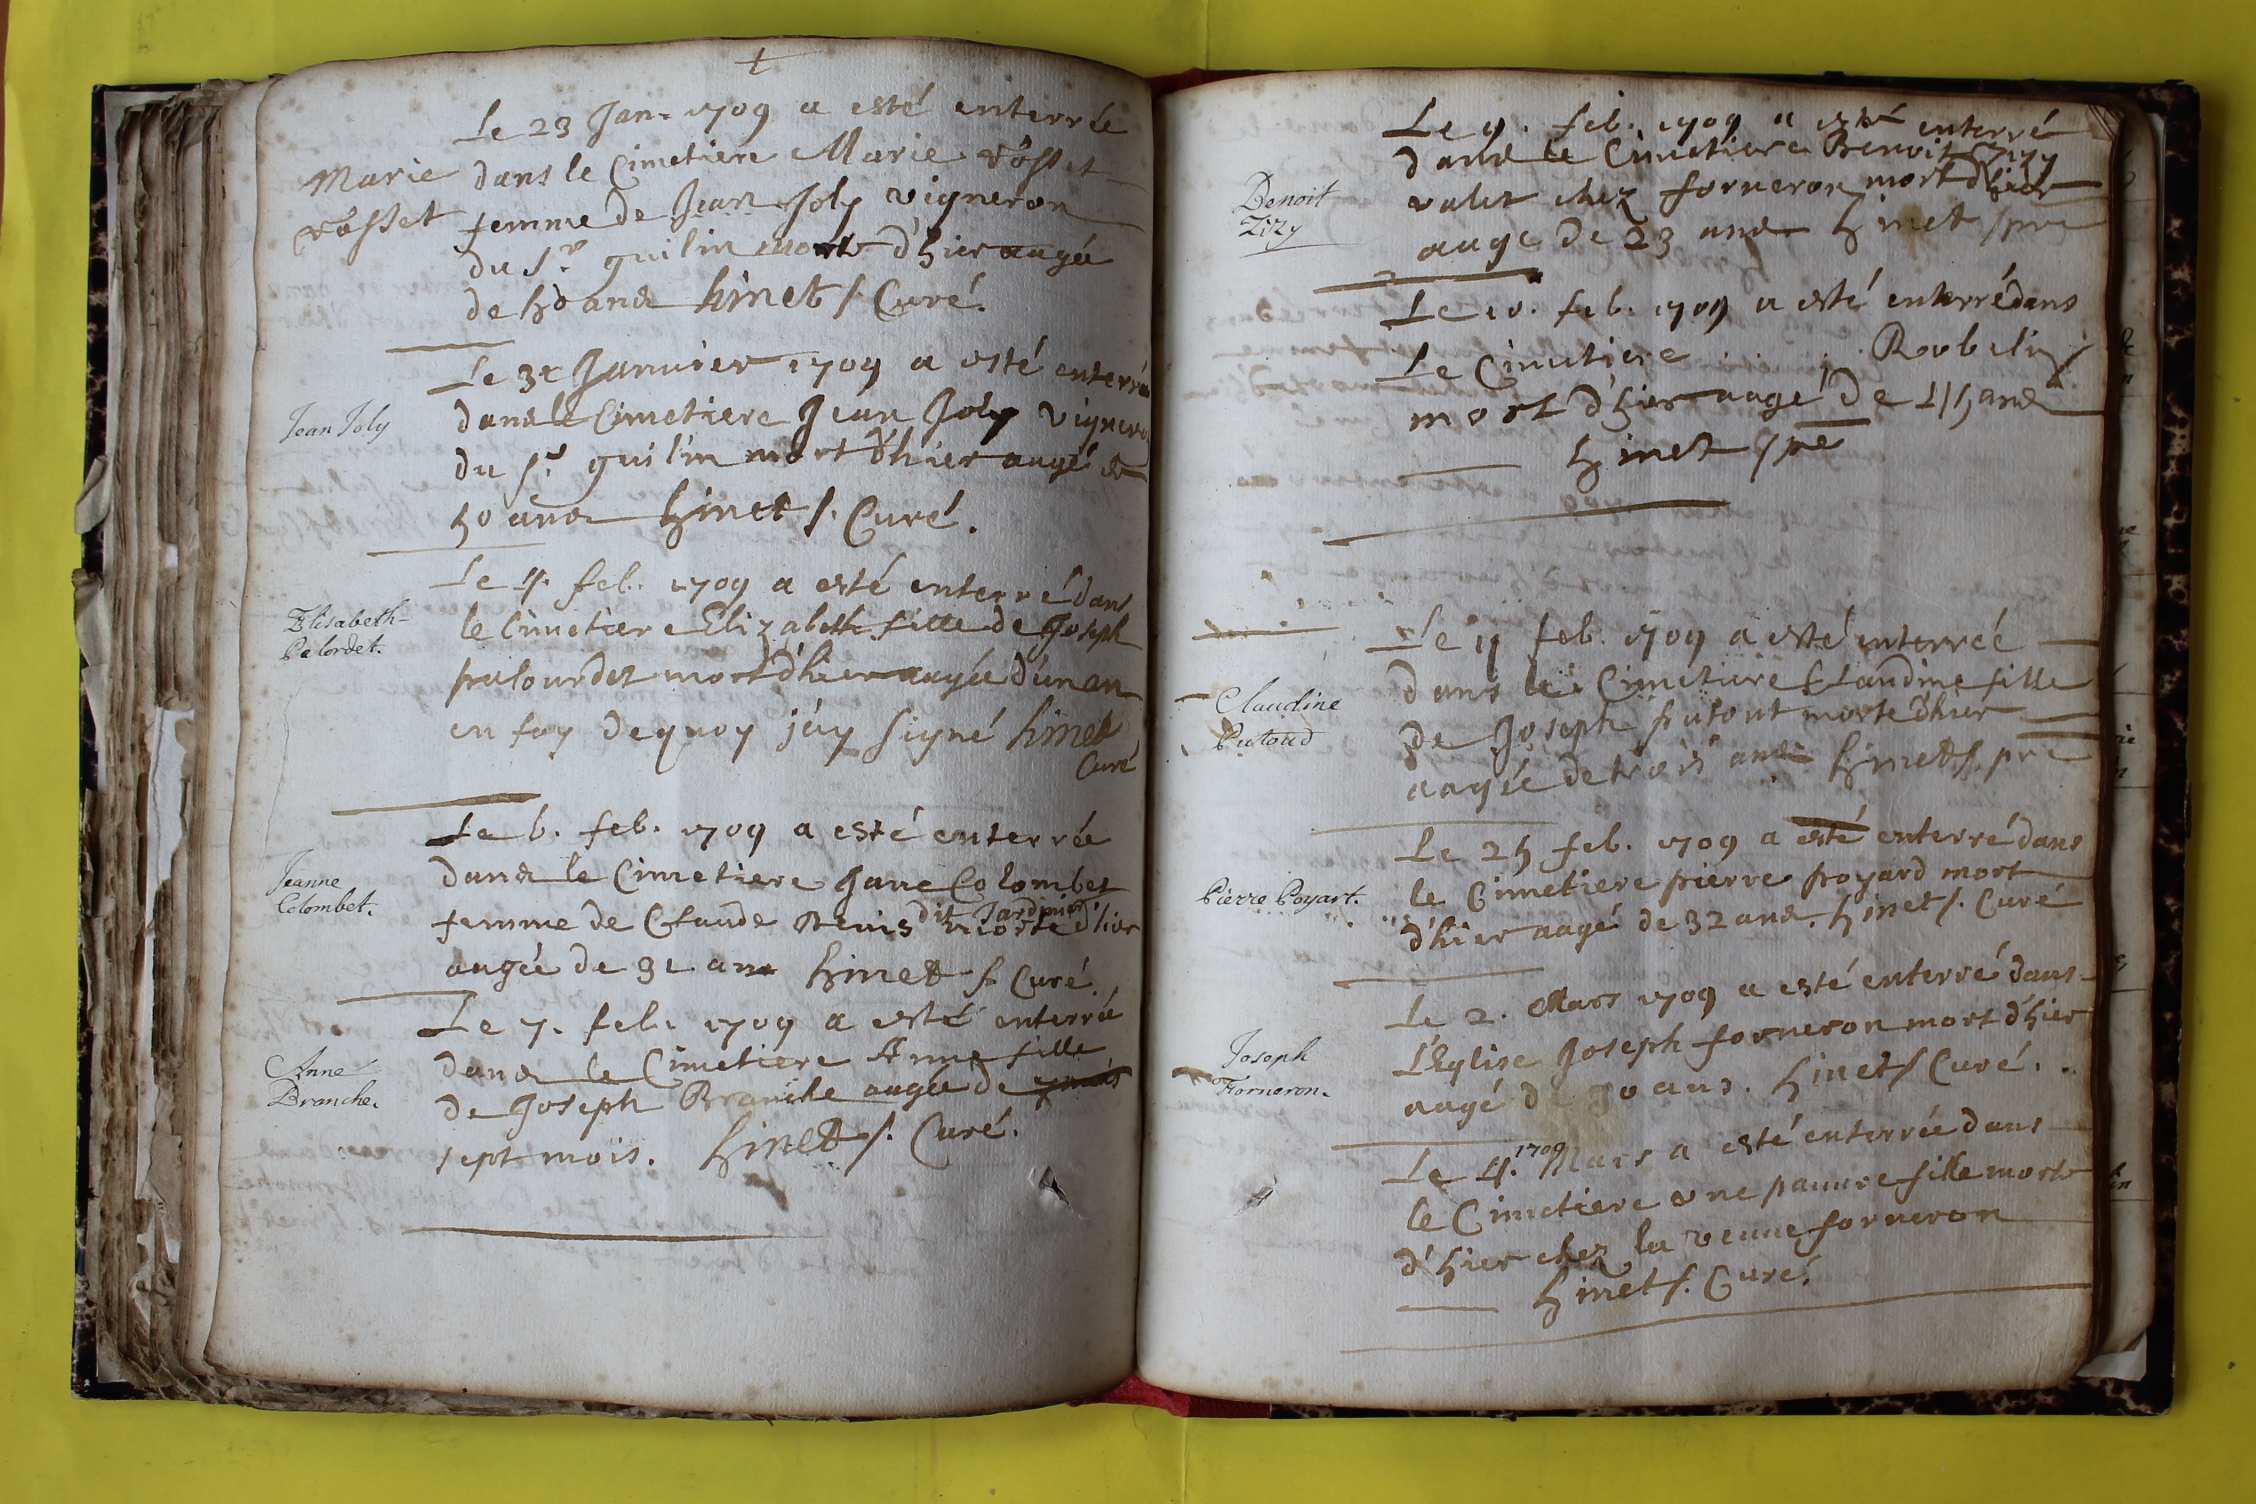 Le 23 Jan. 1709 a esté enterrée
Marie
rosset
dans le Cimetiere Marie rosset
femme de Jean Joly vigneron
du Sr guilin morte d'hier aagée
de 50 ans hinet s. Curé.
Le 31 Janvier 1709 a esté enterré
Jean Joly
dans le Cimetiere Jean Joly vigneron
du Sr guilin mort d'hier aagé de
50 ans hinet s. Curé.
Le 4. feb. 1709 a esté enterré dans
Elisabeth
Palordet.
le Cimetiere Elizabeth fille de Joseph
palourdet mort d'hier aagée d'un an
en foy de quoy j'ay signé hinet
Curé
Le 6. feb. 1709 a esté enterrée
Jeanne
Colombet.
dans le Cimetiere Jane Colombet
femme de Claude Denis dit Jardinier morte d'hier
aagée de 31 an hinet s. Curé.
Le 7. feb. 1709 a esté enterrée
Anne
Branche.
dans le Cimetiere Anne fille
de Joseph Branche aagée de
sept mois. hinet s. Curé.
Le 9. feb. 1709 a esté enterré
Benoit
Zizy
dans le Cimetiere Benoit Zizy
valet chez forneron mort d'hier
aagé de 23 ans hinet s pre
Le 10. feb. 1709 a esté enterré dans
Le Cimetiere Robelin
mort d'hier aagé de 45 ans
hinet s pre
Le 11 feb. 1709 a esté enterrée
Claudine
Putoud
dans le Cimetiere Claudine fille
de Joseph putout morte d'hier
aagée de trois ans hinet s. pre
Le 25 feb. 1709 a esté enterré dans
Pierre Poyart.
le Cimetiere pierre poyard mort
d'hier aagé de 32 ans. hinet s. Curé
Le 2. Mars 1709 a esté enterré dans
Joseph
Forneron.
L'Eglise Joseph forneron mort d'hier
aagé de 30 ans. hinet s Curé.
Le 4. 1709 Mars a esté enterrée dans
le Cimetiere une pauvre fille morte
d'hier chez la veuve forneron
hinet s. Curé.